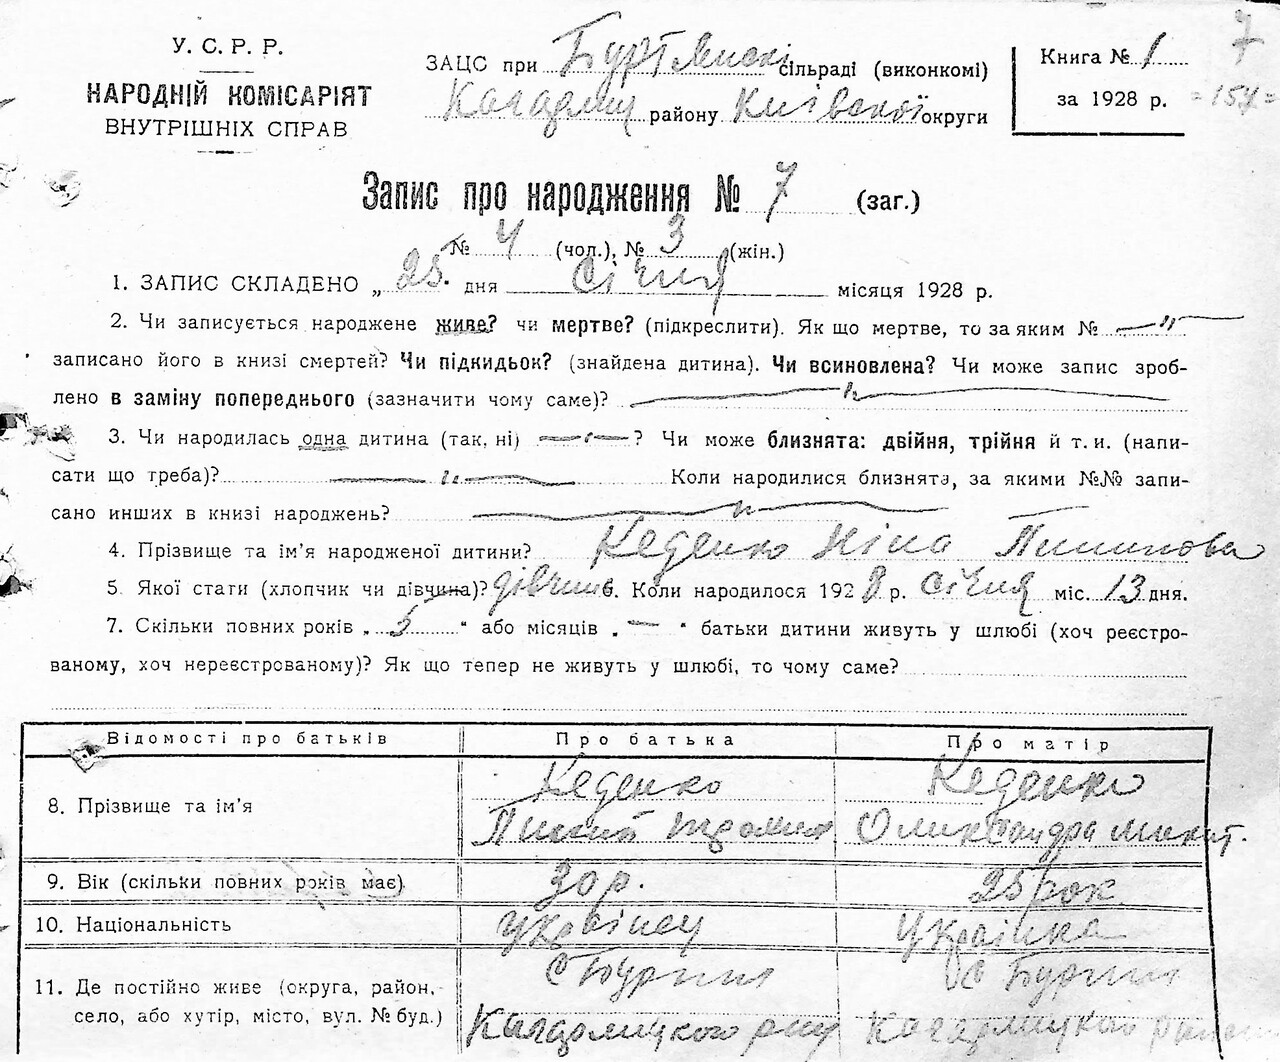 У. С. Р. Р.
НАРОДНІЙ КОМІСАРІЯТ
ВНУТРІШНІХ СПРАВ
ЗАЦС при сільраді (виконкомі)
району Київської округи
Книга № 1
за 1928 р.
7
=154=
Запис про народження № 7 (заг.)
№ 4 (чол.), № 3 (жін.)
1. ЗАПИС СКЛАДЕНО „ 25. дня Січня місяця 1928 р.
2. Чи записується народжене живе? чи мертве? (підкреслити). Як що мертве, то за яким № — " —
записано його в книзі смертей? Чи підкидьок? (знайдена дитина). Чи всиновлена? Чи може запис зроб-
лено в заміну попереднього (зазначити чому саме)? — " —
3. Чи народилась одна дитина (так, ні) — " — ? Чи може близнята: двійня, трійня й т. и. (напи-
сати що треба)? — " — Коли народилися близнята, за якими №№ запи-
сано инших в книзі народжень? — " —
4. Прізвище та ім'я народженої дитини? Кеденко Ніна Пименова
5. Якої стати (хлопчик чи дівчина)? дівчин 6. Коли народилося 1928 р. Січня міс. 13 дня.
7. Скільки повних років „ 5 " або місяців „ — " батьки дитини живуть у шлюбі (хоч реєстро-
ваному, хоч нереєстрованому)? Як що тепер не живуть у шлюбі, то чому саме?
Відомості про батьків Про батька Про матір
8. Прізвище та ім'я
Кеденко
Кеденко
Олександра Микит.
9. Вік (скільки повних років має) 30 р. 25 рок
10. Національність Українец Українка
11. Де постійно живе (округа, район,
село, або хутір, місто, вул. № буд.)